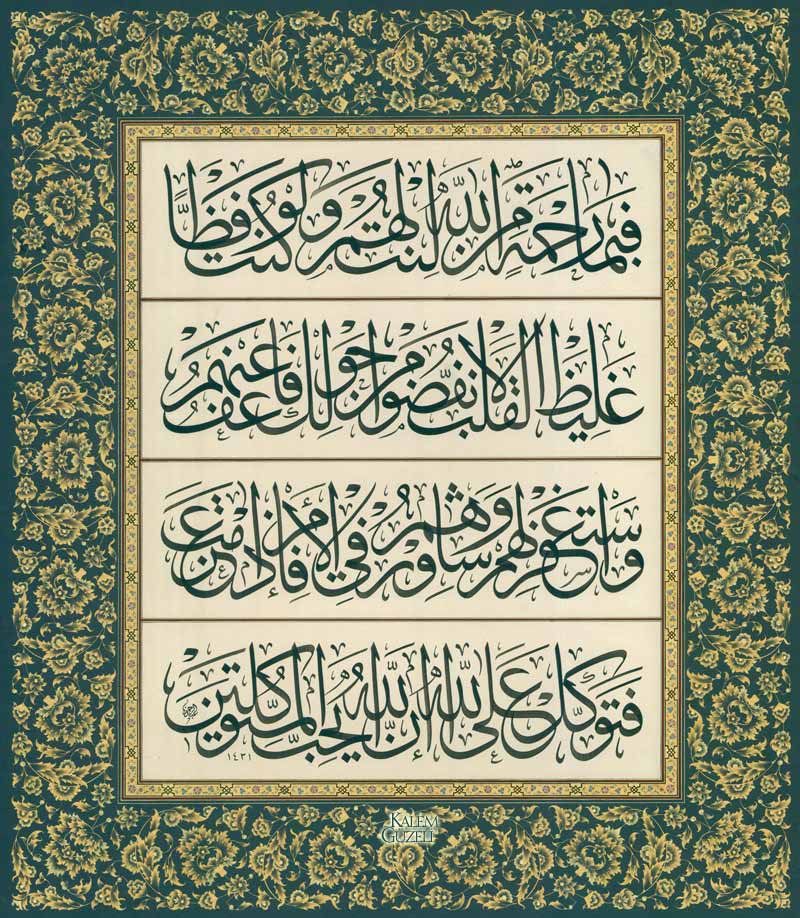 فَبِمَا رَحْمَةٍ مِنَ اللّٰهِ لِنْتَ لَهُمْ وَلَوْ كُنْتَ فَظًّا
غَلِيظَ الْقَلْبِ لَانْفَضُّوا مِنْ حَوْلِكَ فَاعْفُ عَنْهُمْ
وَاسْتَغْفِرْ لَهُمْ وَشَاوِرْهُمْ فِي الْأَمْرِ فَإِذَا عَزَمْتَ
فَتَوَكَّلْ عَلَى اللّٰهِ إِنَّ اللّٰهَ يُحِبُّ الْمُتَوَكِّلِينَ
١٤٣١
KALEM
GÜZELİ